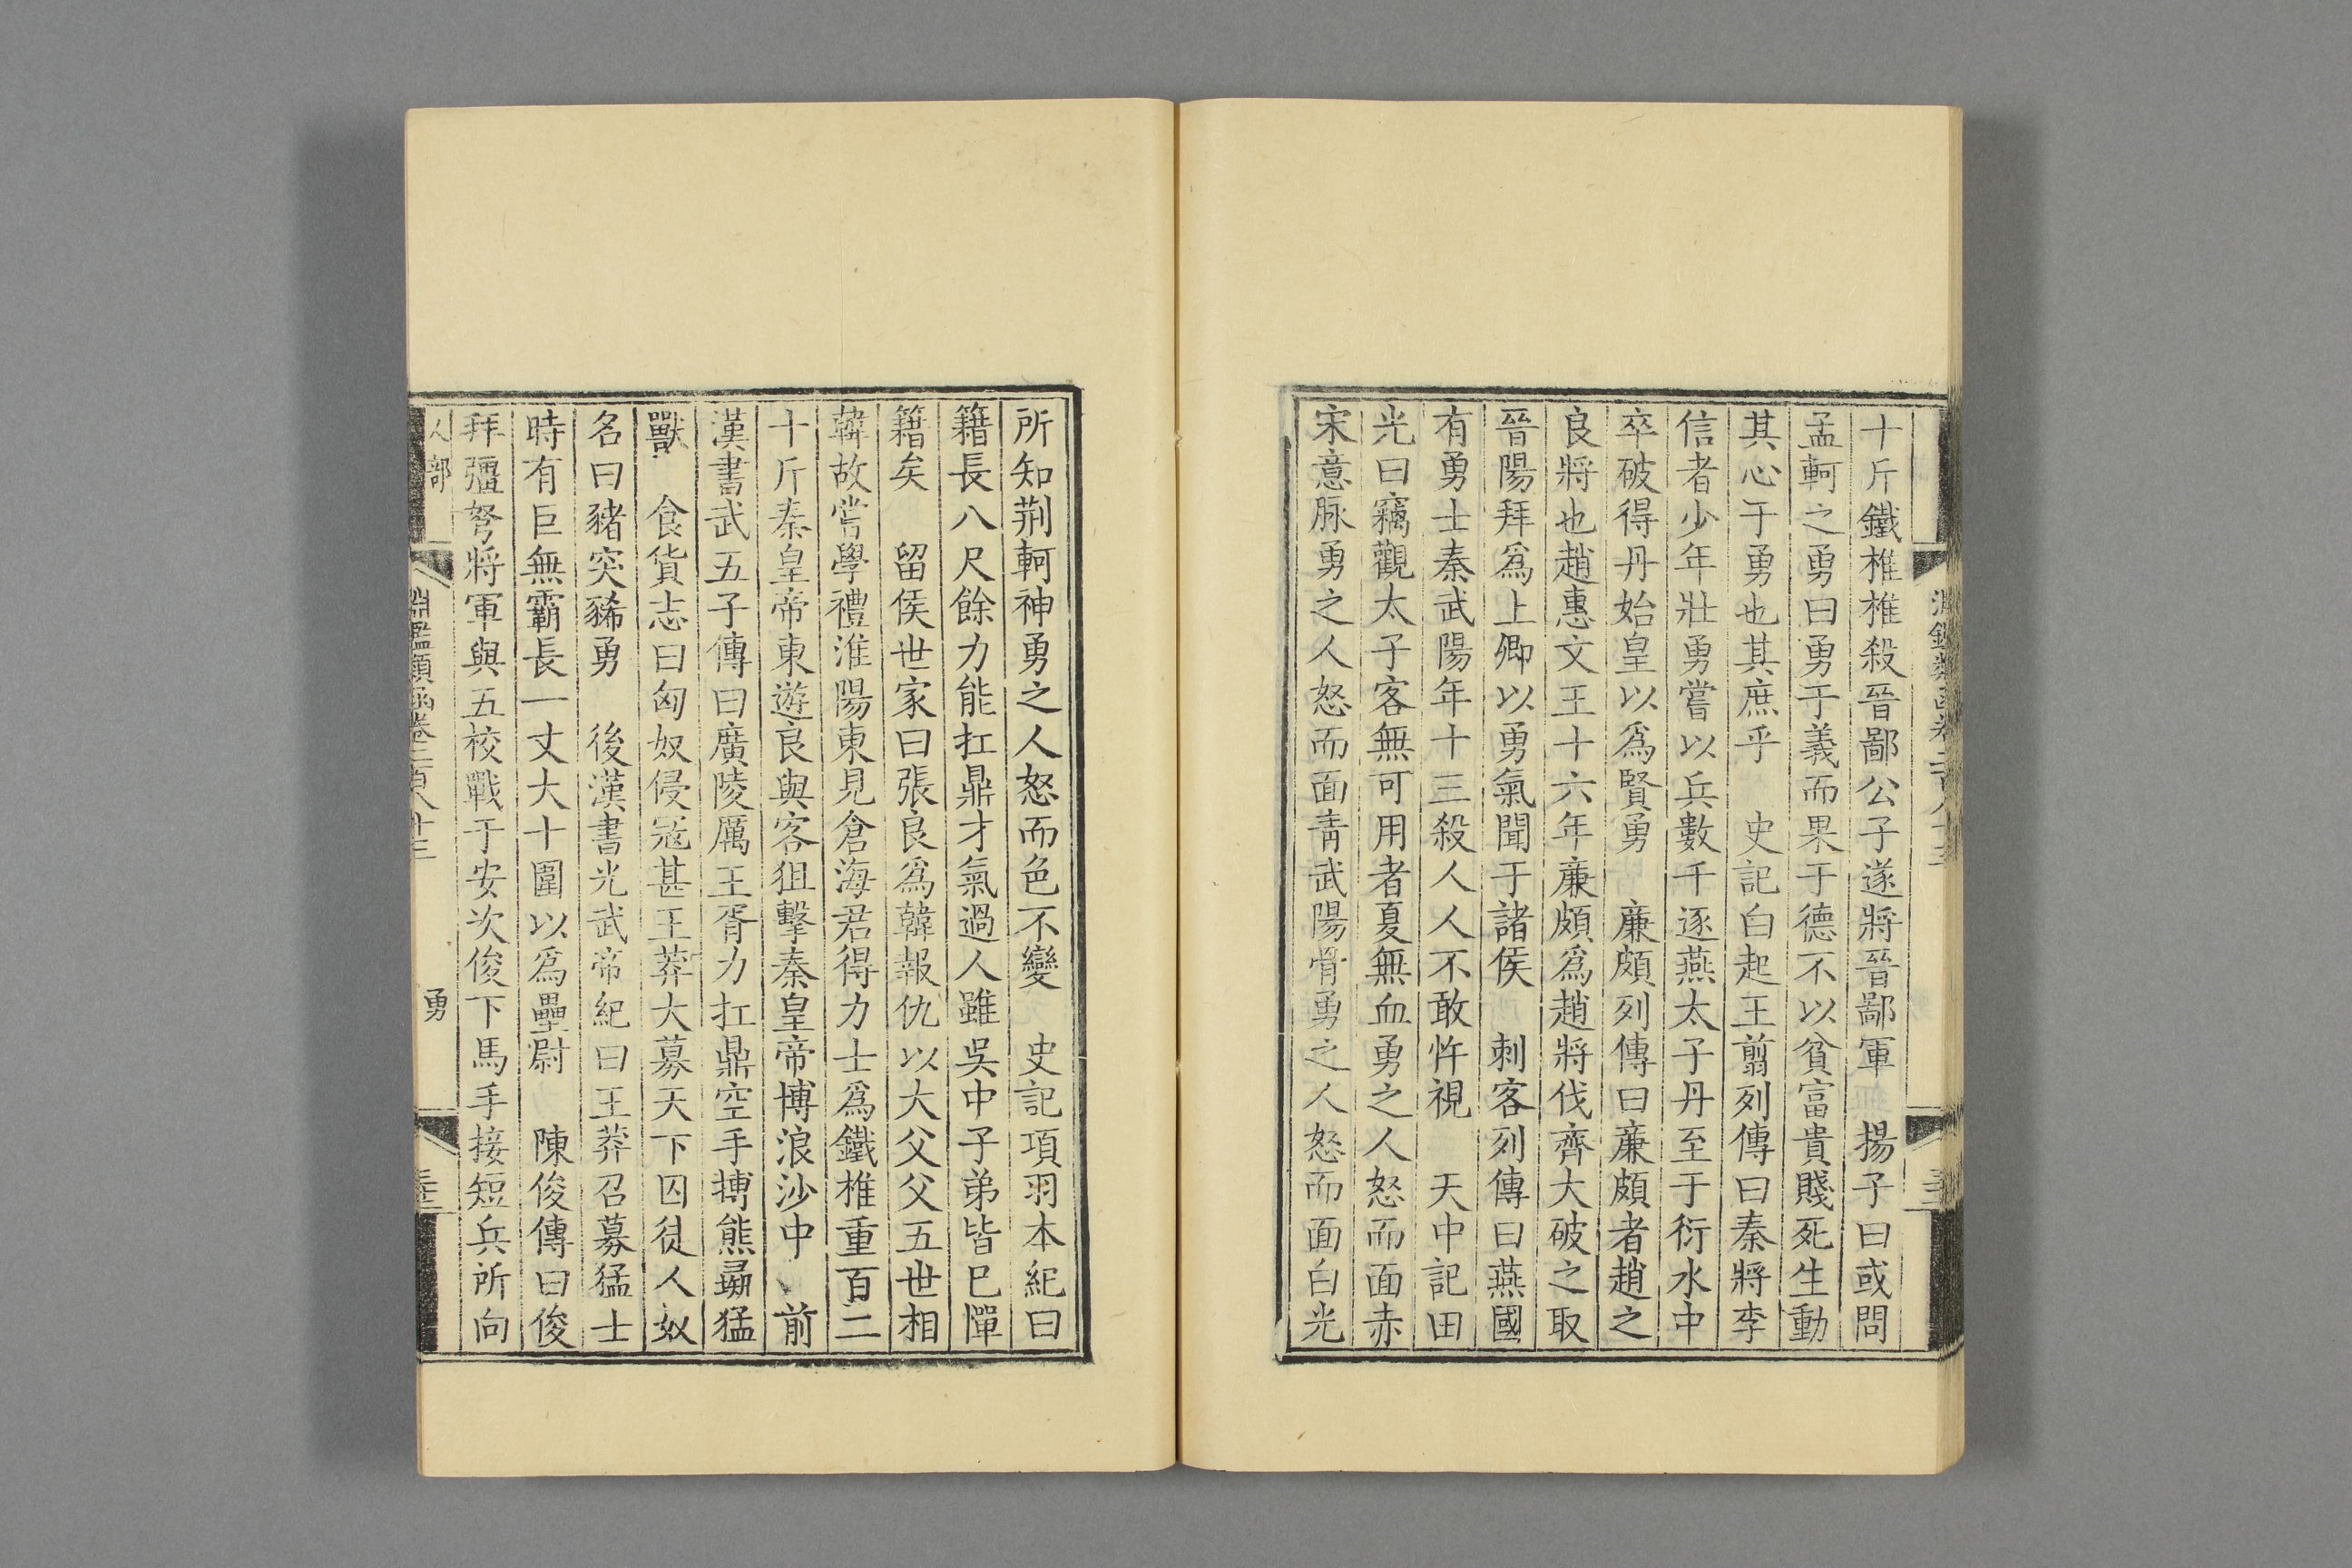 十斤鐵椎椎殺晉鄙公子遂將晉鄙軍　揚子曰或問
孟軻之勇曰勇于義而果于德不以貧富貴賤死生動
其心于勇也其庶乎　史記白起王翦列傳曰秦將李
信者少年壯勇嘗以兵數千逐燕太子丹至于衍水中
卒破得丹始皇以爲賢勇　廉頗列傳曰廉頗者趙之
良將也趙惠文王十六年廉頗爲趙將伐齊大破之取
晉陽拜爲上卿以勇氣聞于諸侯　刺客列傳曰燕國
有勇士秦武陽年十三殺人人不敢忤視　天中記田
光曰竊觀太子客無可用者夏無血勇之人怒而面赤
宋意脉勇之人怒而面青武陽骨勇之人怒而面白光
所知荆軻神勇之人怒而色不變　史記項羽本紀曰
籍長八尺餘力能扛鼎才氣過人雖吳中子弟皆已憚
籍矣　留侯世家曰張良爲韓報仇以大父父五世相
韓故嘗學禮淮陽東見倉海君得力士爲鐵椎重百二
十斤秦皇帝東遊良與客狙擊秦皇帝博浪沙中　前
漢書武五子傳曰廣陵厲王胥力扛鼎空手搏熊彘猛
獸　食貨志曰匈奴侵寇甚王莽大募天下囚徒人奴
名曰豬突豨勇　後漢書光武帝紀曰王莽召募猛士
時有巨無霸長一丈大十圍以爲壘尉　陳俊傳曰俊
拜彊弩將軍與五校戰于安次俊下馬手接短兵所向
人部　淵鑑類函卷二百八十三　勇